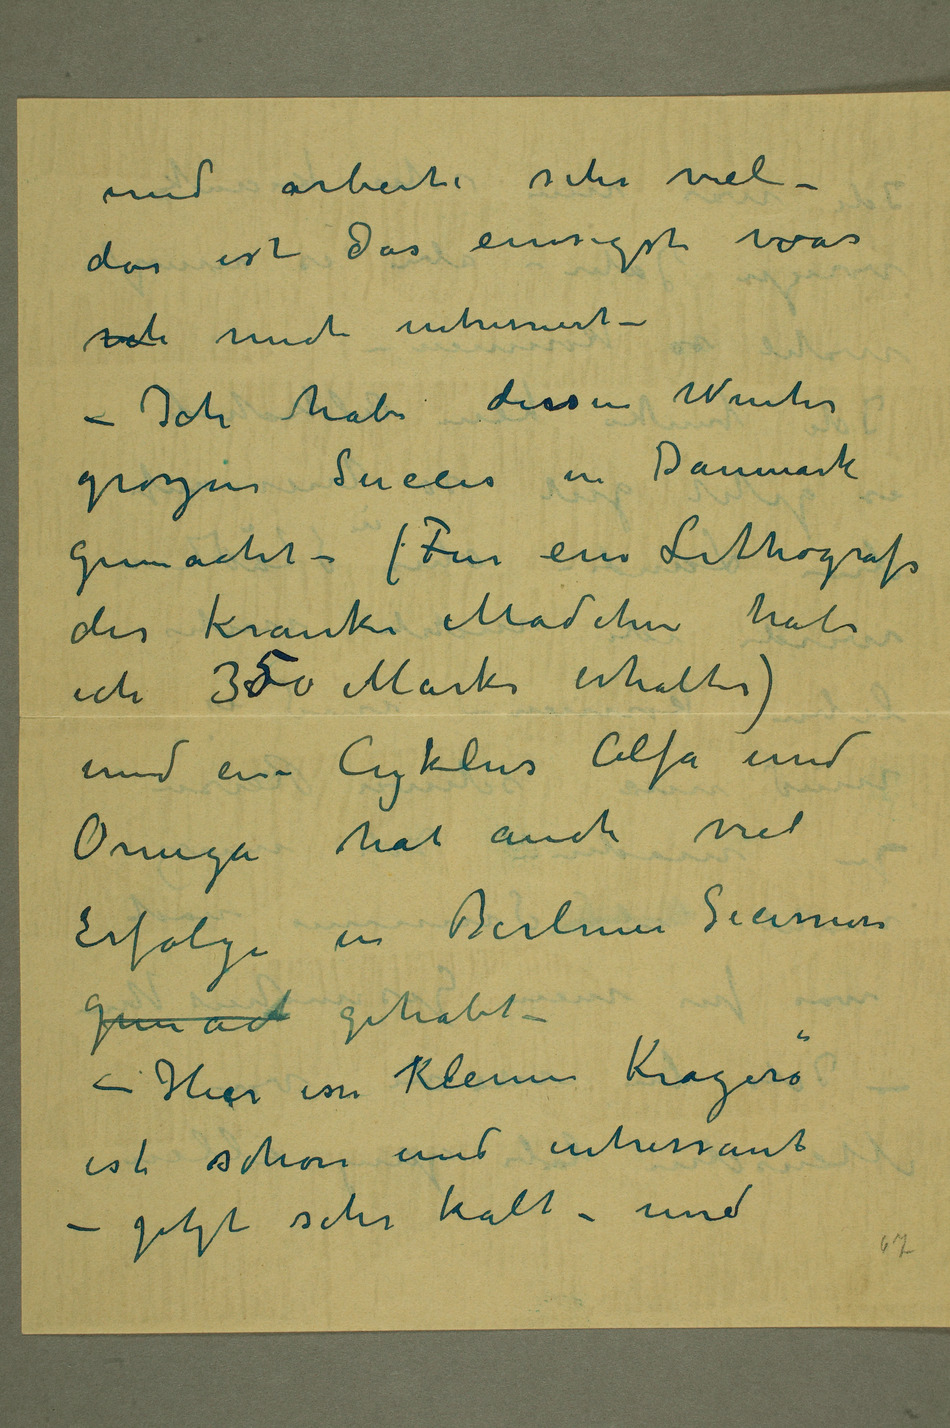 und arbeite sehr viel –
das ist das einsigste was
ich mich intressiert –
– Ich habe diesen Winter
grozen Succes in Danmark
gemacht – (Fur ein Lithografi
des kranke Mädchen habe
ich 350 Marks erhalten)
und ein Cyklus Alfa und
Omega hat auch viel
Erfolge in Berliner Secession
gemact gehabt –
– Hier im kleinen Kragerö
ist schön und intressant
– jetzt sehr kalt – und
67